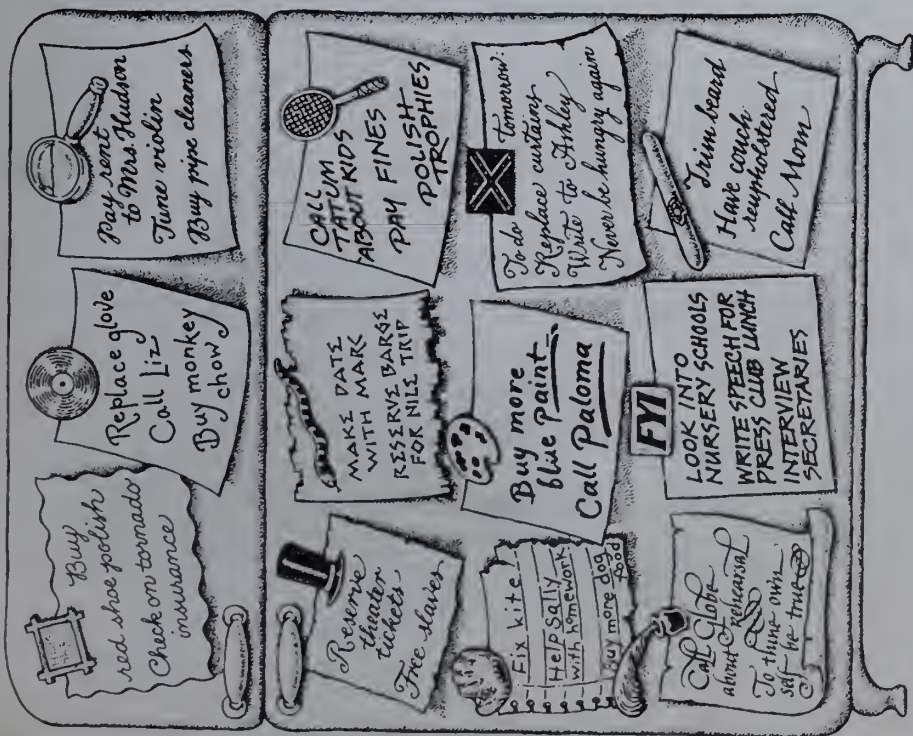 Buy
red shoe polish
Check on tornado
insurance
Replace glove
Call Liz
Buy monkey
chow
Pay rent
to Mrs. Hudson
Tune violin
Buy pipe cleaners
Reserve
theater
tickets
Free slaves
MAKE DATE
WITH MARC
RESERVE BARGE
FOR NILE TRIP
CALL
TATUM
ABOUT KIDS
PAY FINES
POLISH
TROPHIES
Fix kite
Help Sally
with homework
Buy more dog
food
Buy more
blue Paint
Call Paloma
To do tomorrow:
Replace curtains
Write to Ashley
Never be hungry again
Call Globe
about rehearsal
To thine own
self be true
FYI
LOOK INTO
NURSERY SCHOOLS
WRITE SPEECH FOR
PRESS CLUB LUNCH
INTERVIEW
SECRETARIES
Trim beard
Have couch
reupholstered
Call Mom